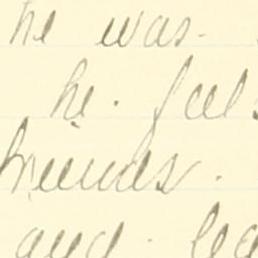 he was
he. feels
friends.
and